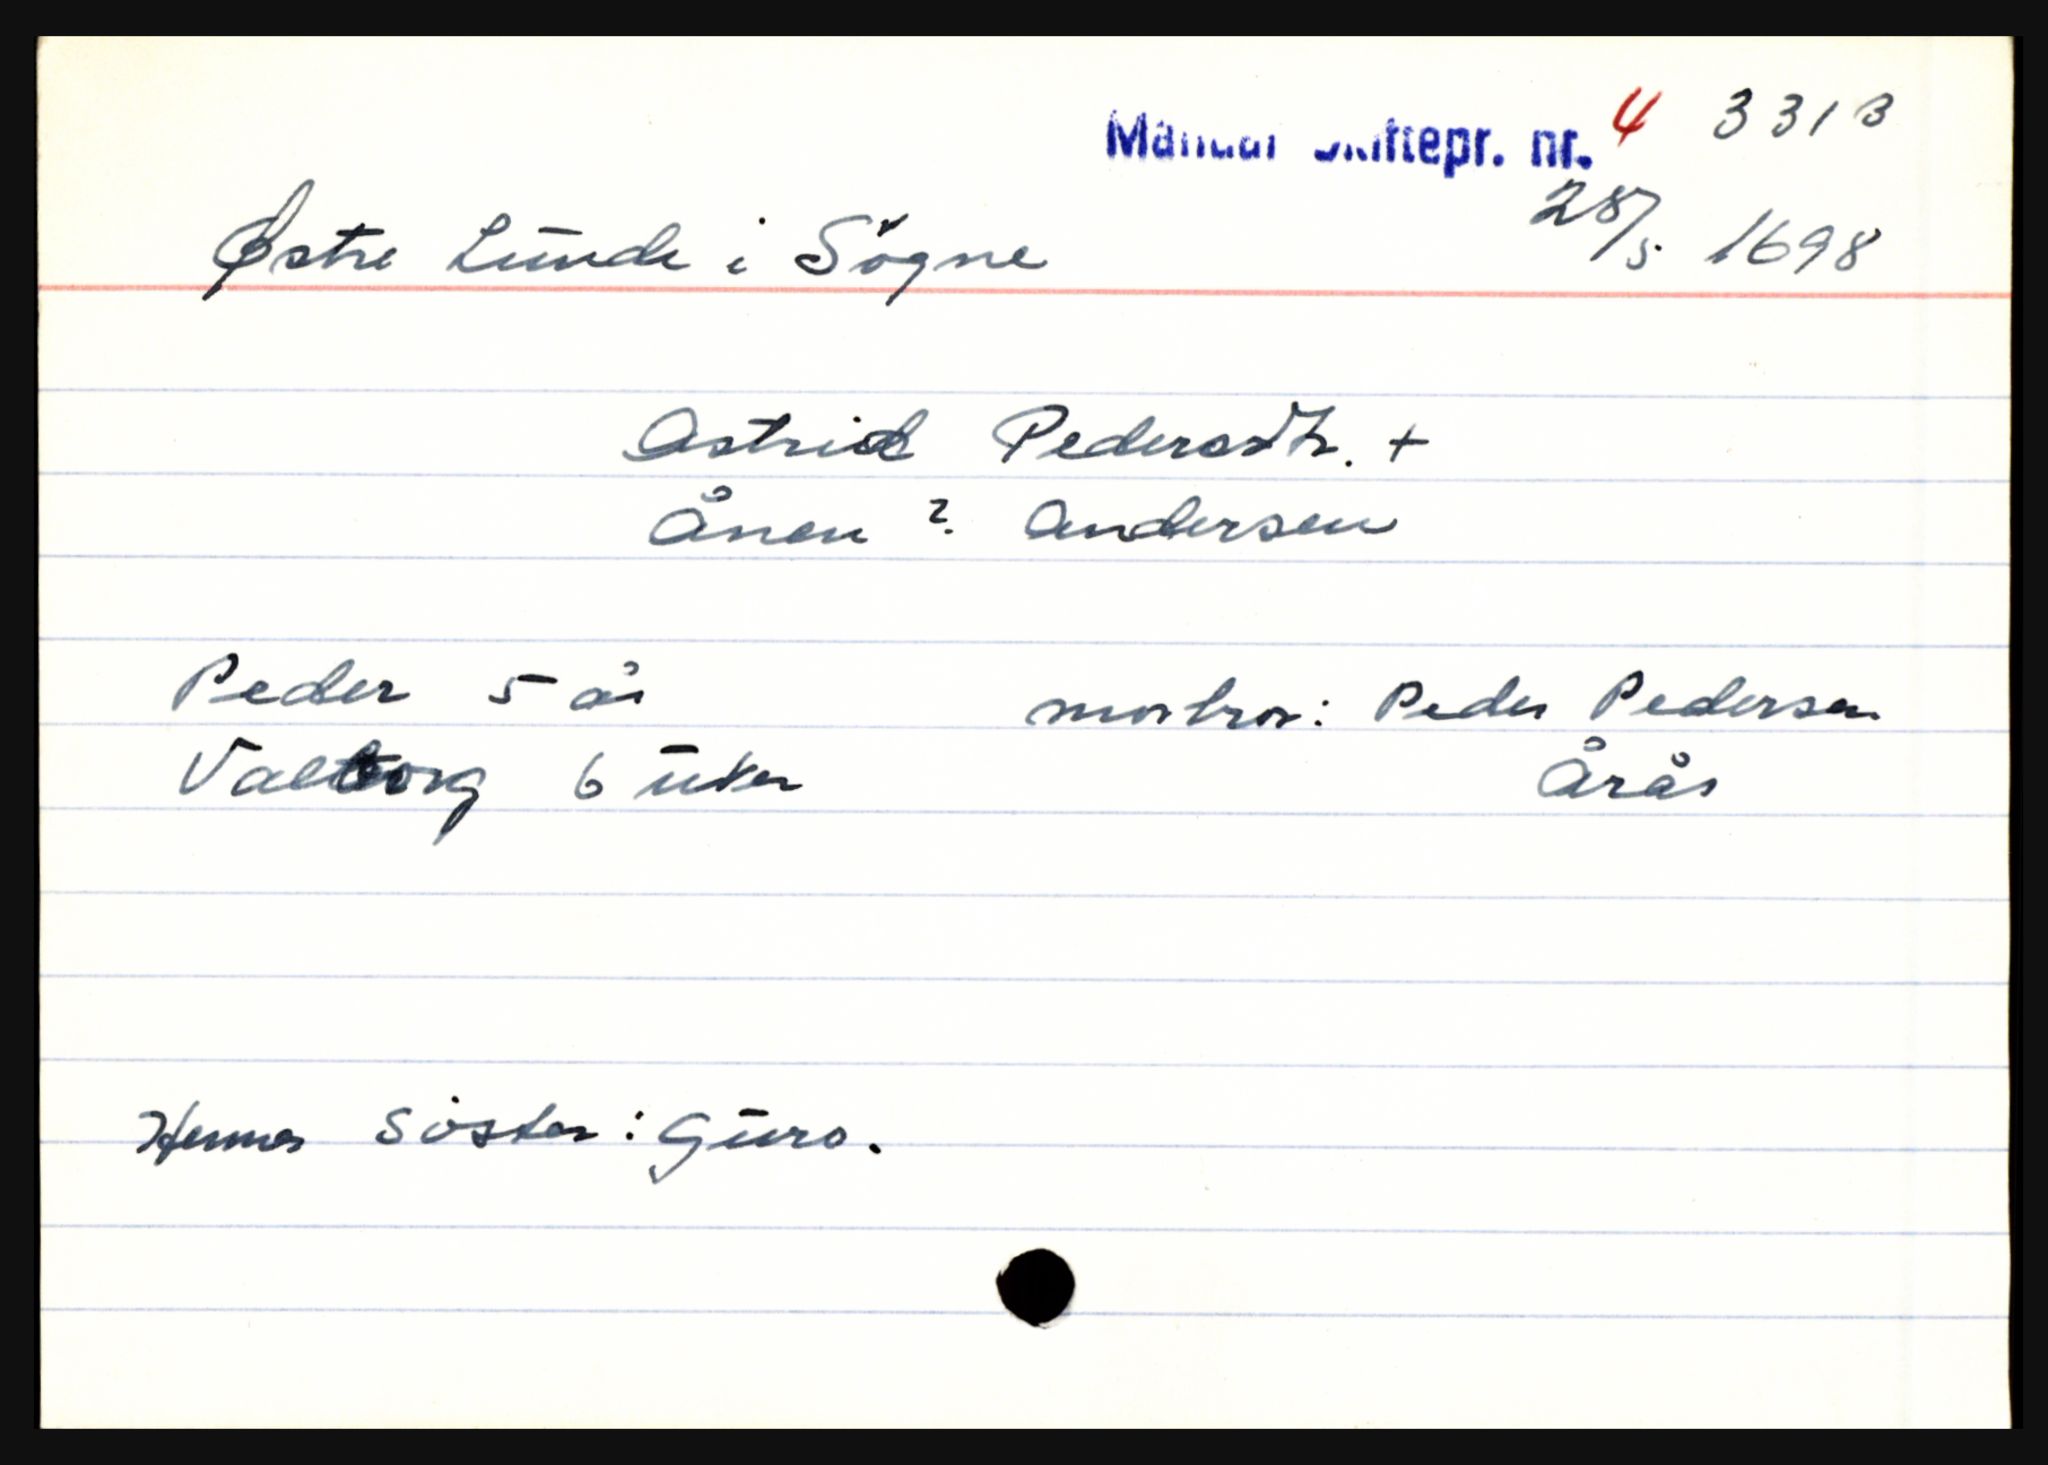 Mandal Skiftepr. nr. 4 331 B
Østre Lunde i Søgne 28/5. 1698
Astrid Pedersdtr. +
Ånen ? Andersen
Peder 5 år morbror: Peder Pedersen
Valborg 6 uker Årås
Hennes söster: Guro.